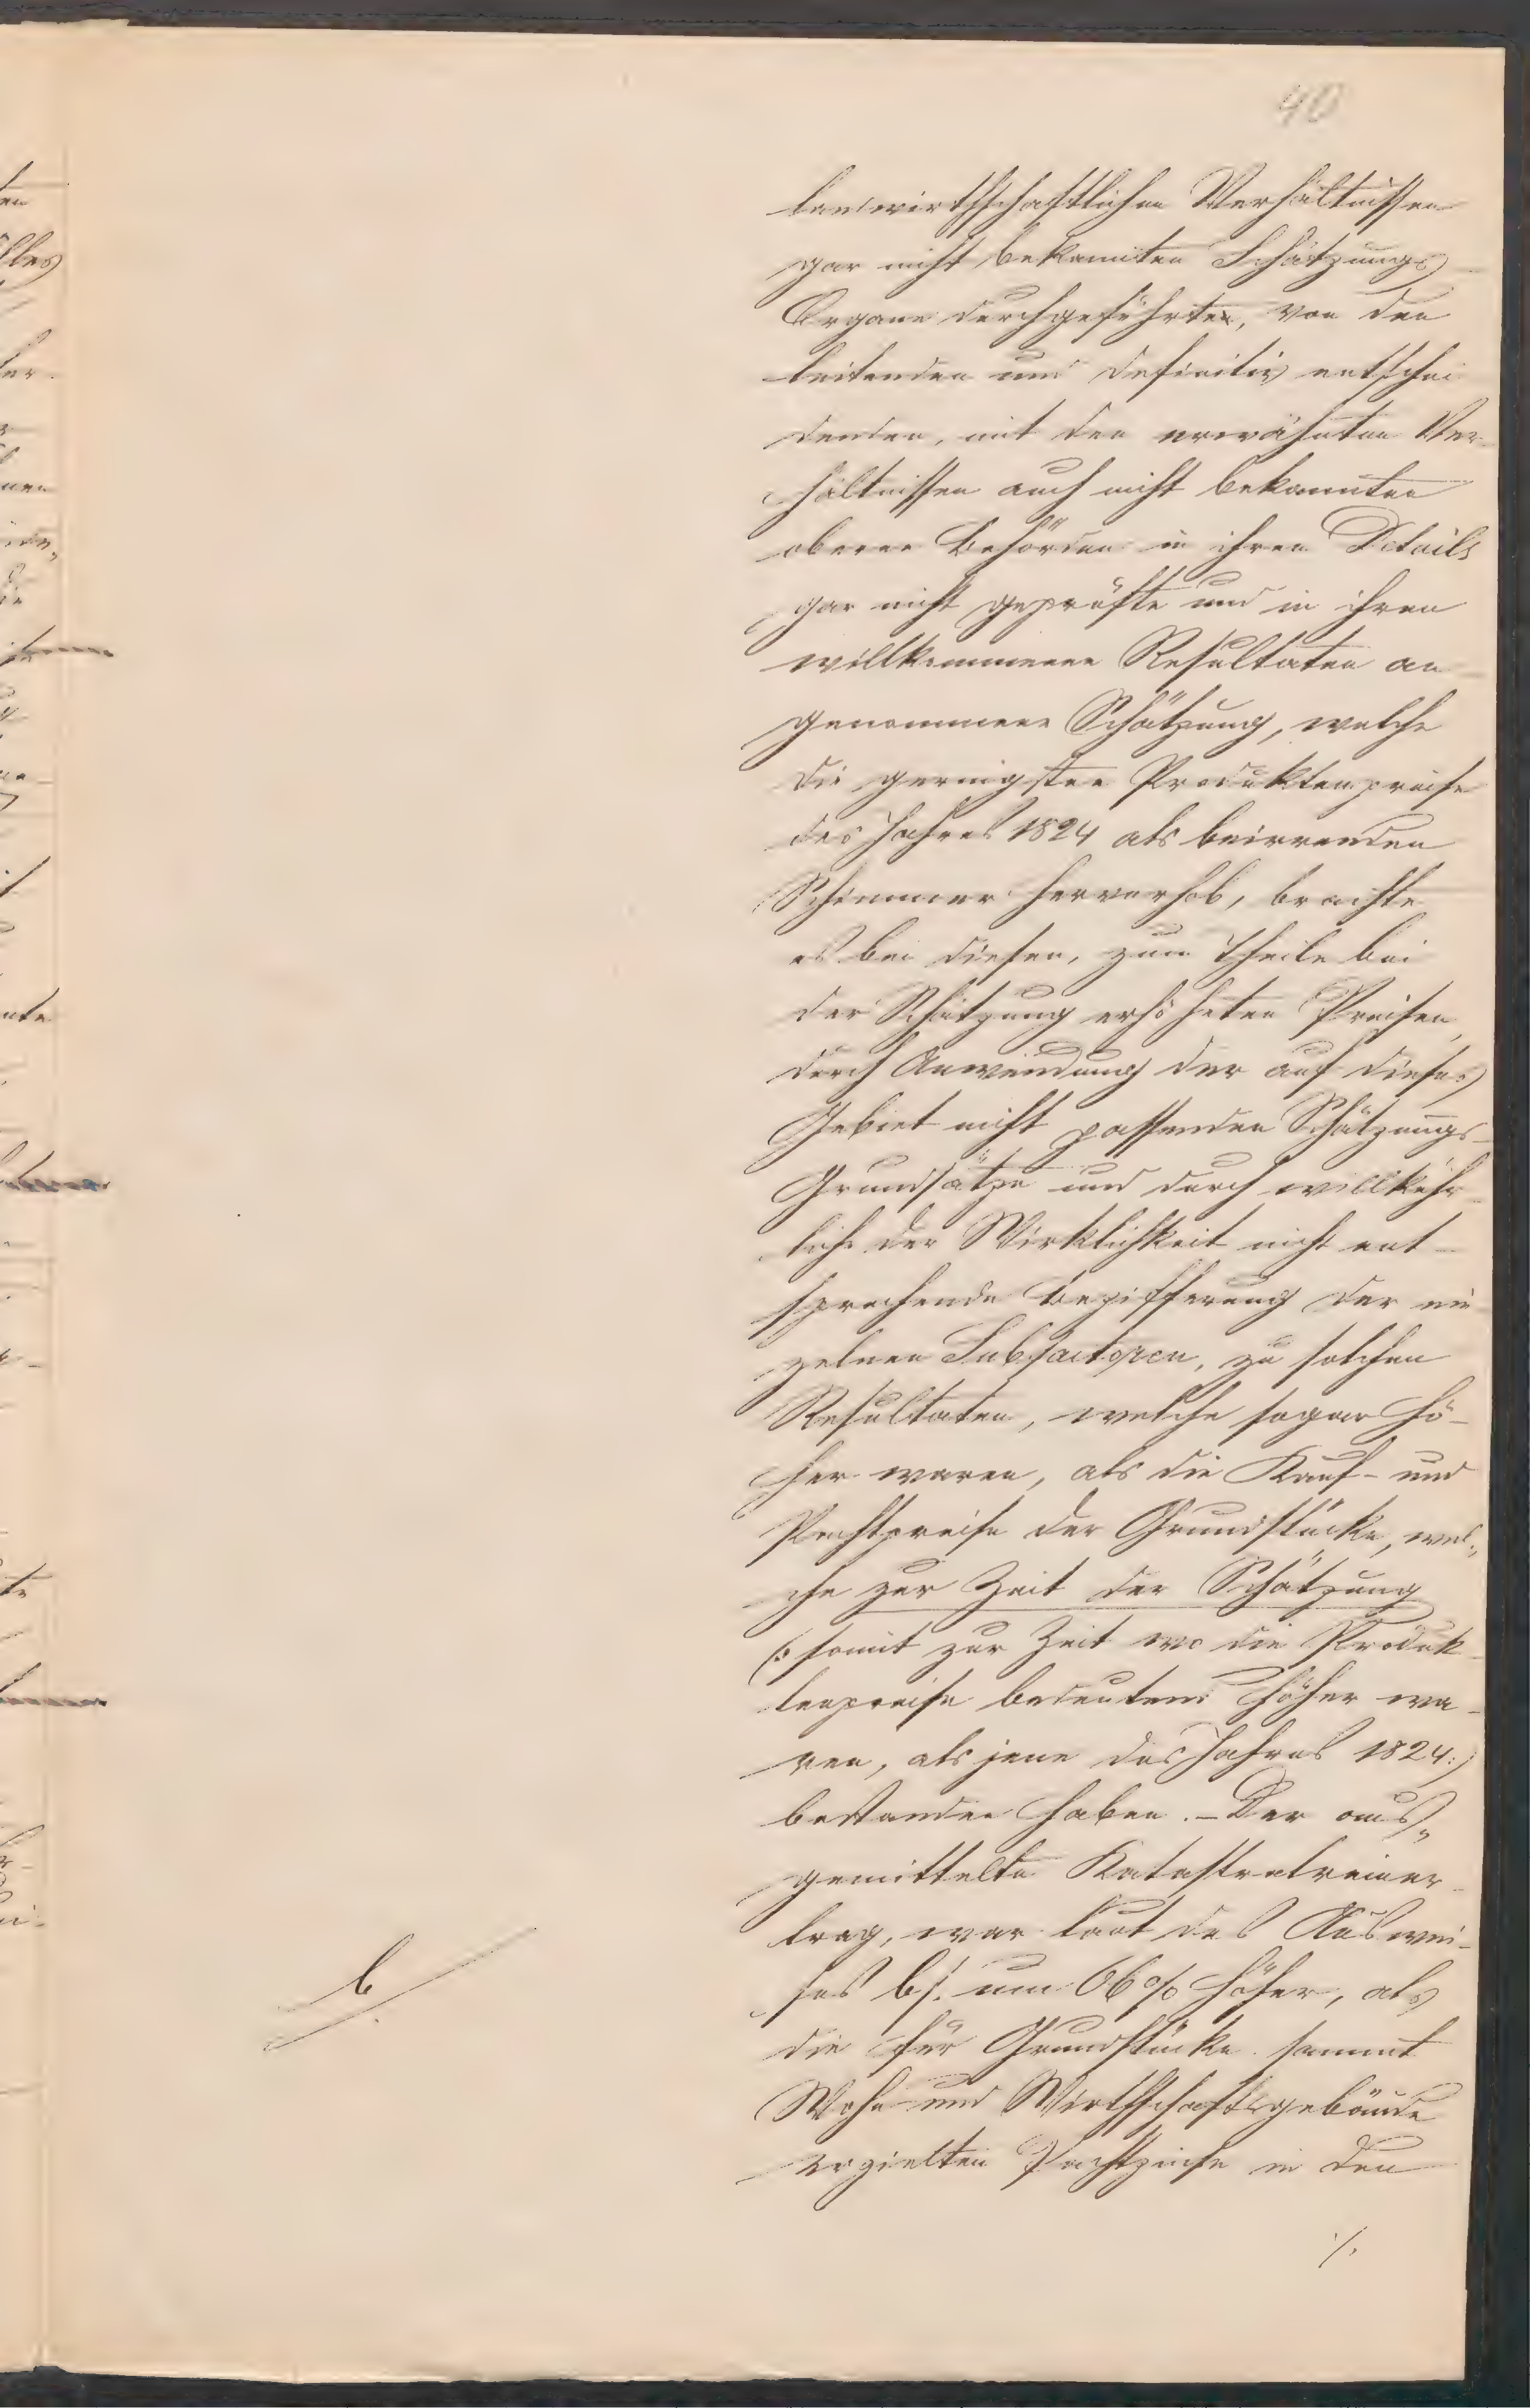 40
landwirthschaftlichen Verhältnissen
gar nicht bekannten Schätzungs
Organe durchgeführte, von den
leitenden und definitiv entschei
denden, mit den erwähnten Ver-
hältnissen auch nicht bekannten
oberen Behörden in ihren Details
gar nicht geprüfte und in ihren
willkommenen Resultaten an
genommene Schätzung, welche
die geringsten Produktenpreise
des Jahres 1824 als beirrenden
Schimmer hervorhob, brachte
es bei diesen, zum Theile bei
der Schätzung erhöheten Preisen,
durch Anwendung der auf dieses
Gebiet nicht passenden Schätzungs-
Grundsätze und durch willkühr
liche der Wirklichkeit nicht ent-
sprechende Bezifferung der ein
zelnen Subfactoren, zu solchen
Resultaten, welche sogar hö-
her waren, als die Kauf- und
Pachtpreise der Grundstücke, wel„
che zur Zeit der Schätzung
(: somit zur Zeit wo die Produk
tenpreise bedeutend höher wa-
ren, als jene des Jahres 1824:)
bestanden haben. – Der aus„
gemittelte Katastralreiner
trag, war laut des Auswei-
ses b/. um 66% höher, als
die für Grundstücke sammt
Wohn- und Wirthschaftsgebäude
erzielten Pachtzinse in den
b/.
./.